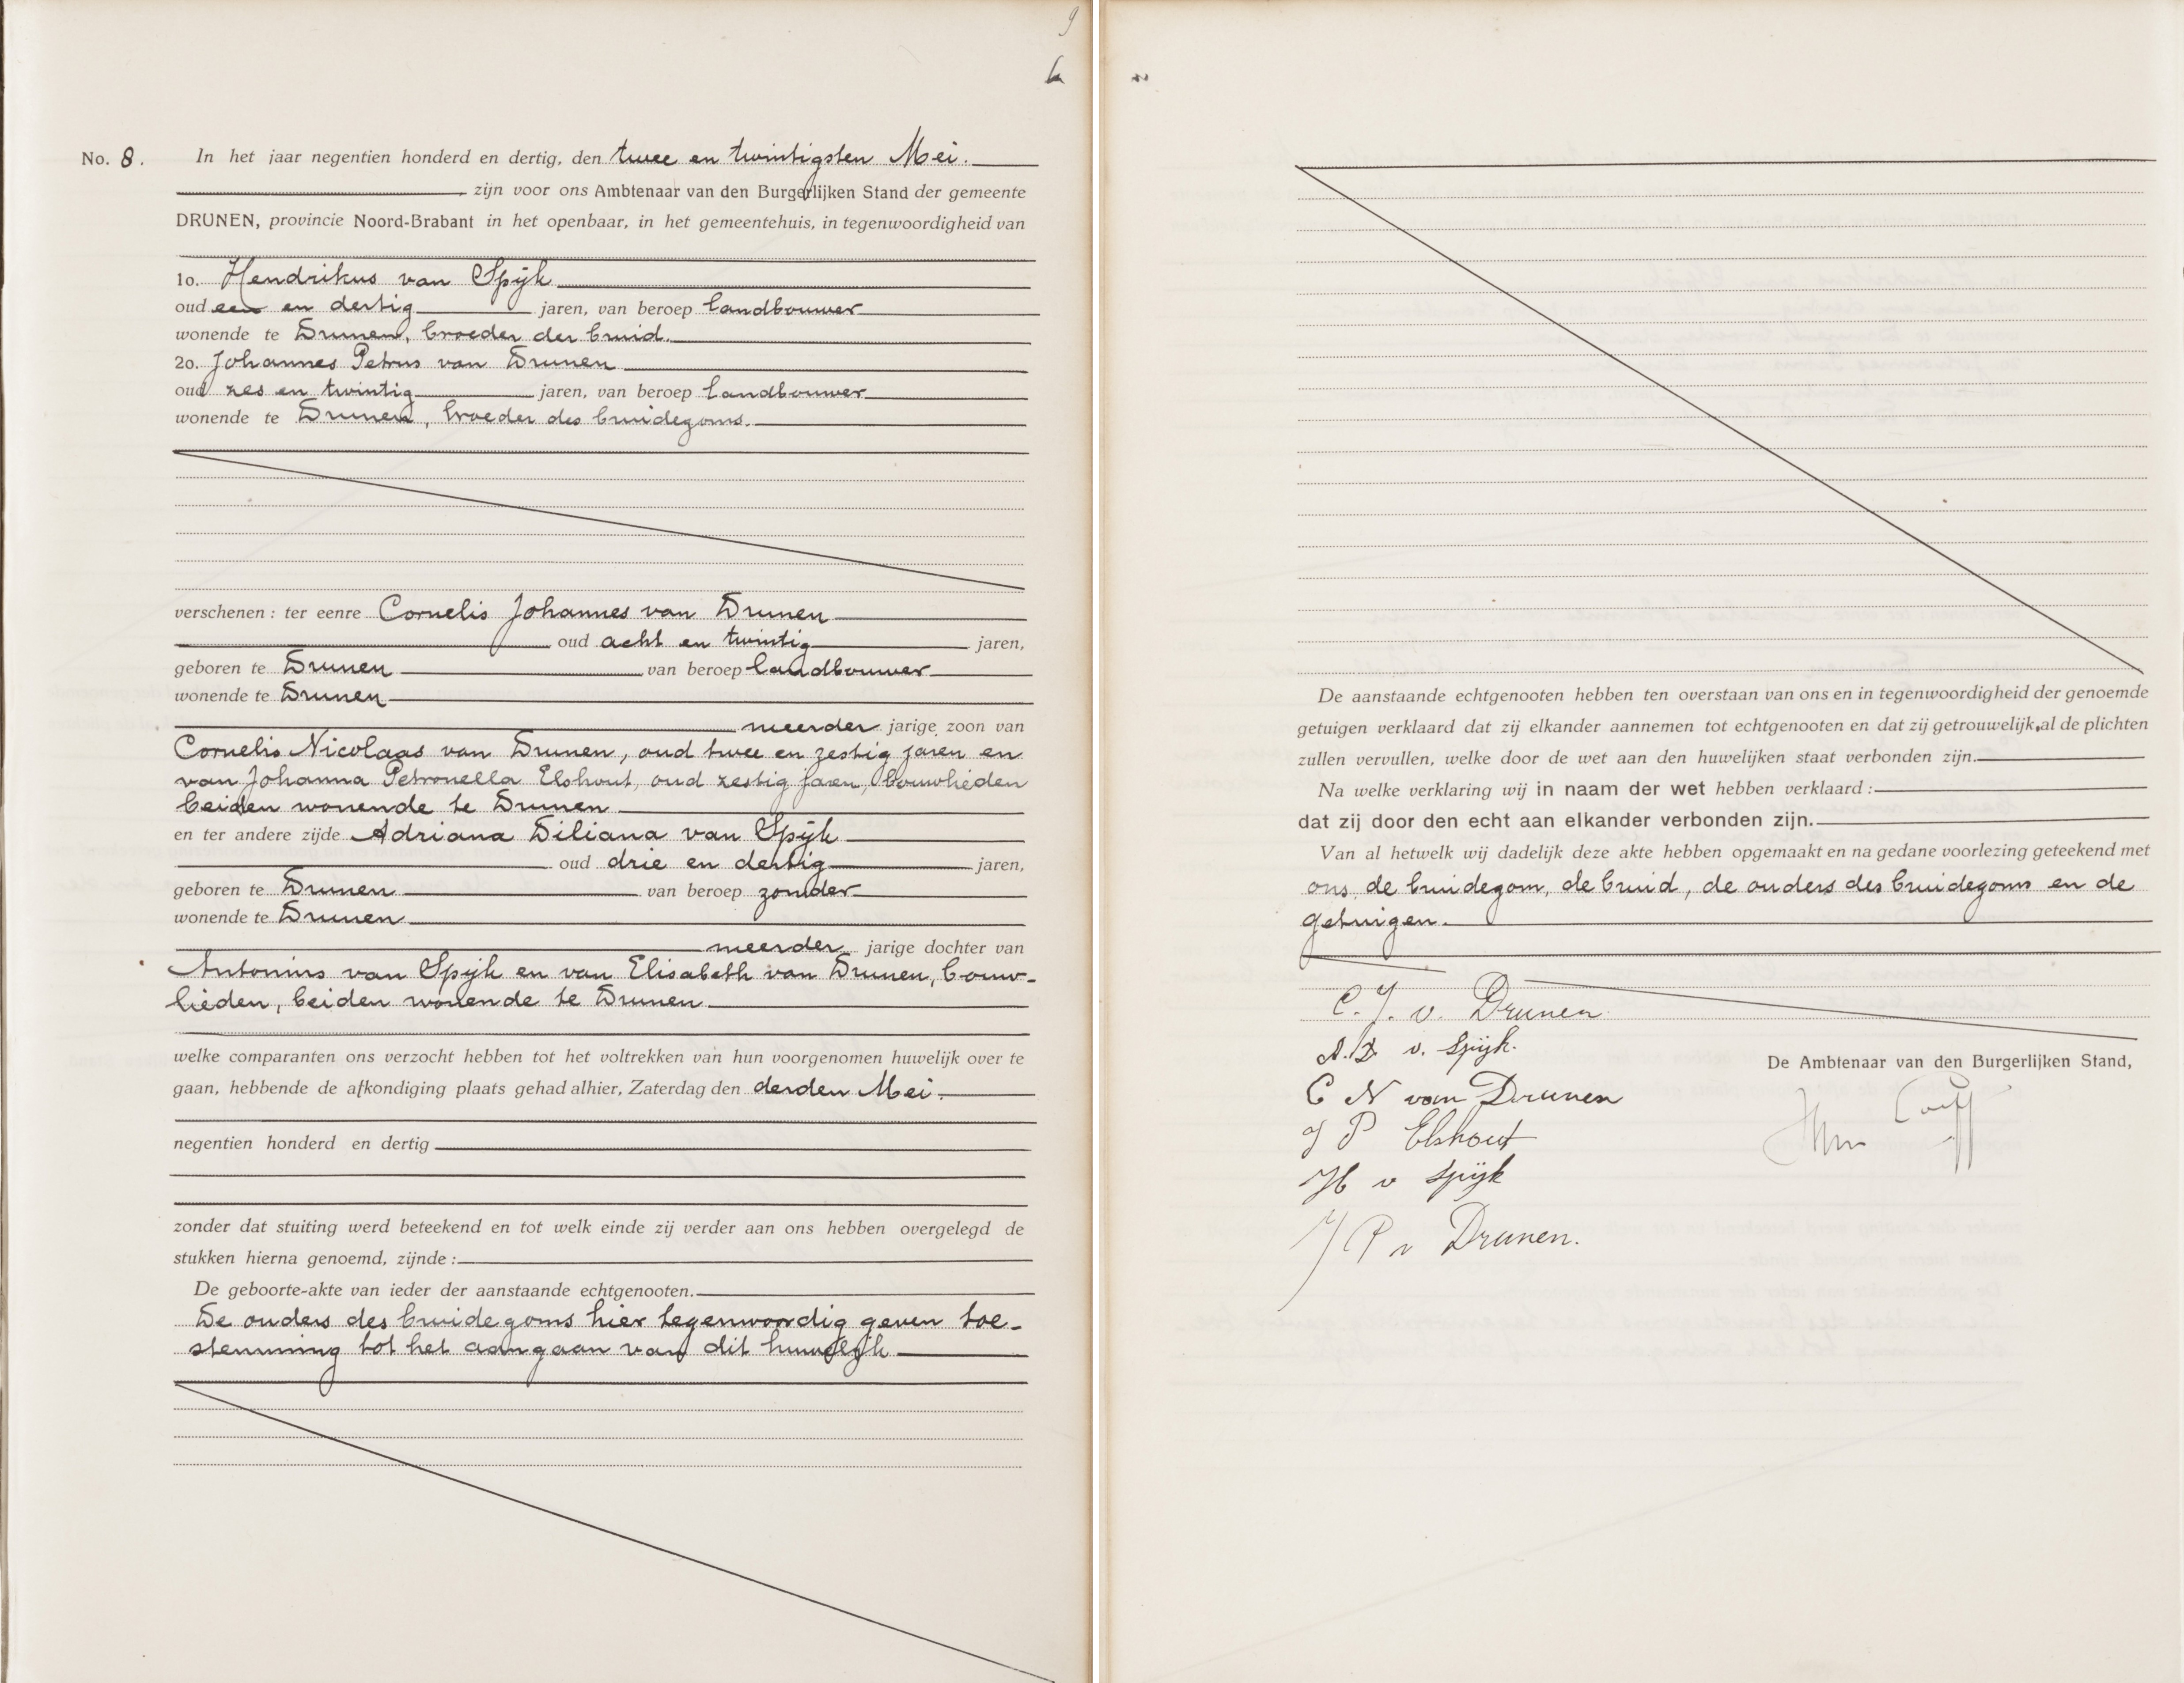 9
No. 8. In het jaar negentien honderd en dertig, den twee en twintigsten Mei.
zijn voor ons Ambtenaar van den Burgerlijken Stand der gemeente
DRUNEN, provincie Noord-Brabant in het openbaar, in het gemeentehuis, in tegenwoordigheid van
1o. Hendrikus van Spijk
oud een en dertig jaren, van beroep landbouwer
wonende te Drunen, broeder der bruid.
2o. Johannes Petrus van Drunen
oud zes en twintig jaren, van beroep landbouwer
wonende te Drunen, broeder des bruidegoms.
verschenen: ter eenre Cornelis Johannes van Drunen
oud acht en twintig jaren,
geboren te Drunen van beroep landbouwer
wonende te Drunen
meerder jarige zoon van
Cornelis Nicolaas van Drunen, oud twee en zestig jaren en
van Johanna Petronella Elshout, oud zestig jaren, bouwlieden
beiden wonende te Drunen
en ter andere zijde Adriana Diliana van Spijk
oud drie en dertig jaren,
geboren te Drunen van beroep zonder
wonende te Drunen
meerder jarige dochter van
Antonius van Spijk en van Elisabeth van Drunen, bouw-
lieden, beiden wonende te Drunen
welke comparanten ons verzocht hebben tot het voltrekken van hun voorgenomen huwelijk over te
gaan, hebbende de afkondiging plaats gehad alhier, Zaterdag den derden Mei.
negentien honderd en dertig
zonder dat stuiting werd beteekend en tot welk einde zij verder aan ons hebben overgelegd de
stukken hierna genoemd, zijnde:
De geboorte-akte van ieder der aanstaande echtgenooten.
De ouders des bruidegoms hier tegenwoordig geven toe-
stemming tot het aangaan van dit huwelijk
De aanstaande echtgenooten hebben ten overstaan van ons en in tegenwoordigheid der genoemde
getuigen verklaard dat zij elkander aannemen tot echtgenooten en dat zij getrouwelijk al de plichten
zullen vervullen, welke door de wet aan den huwelijken staat verbonden zijn.
Na welke verklaring wij in naam der wet hebben verklaard:
dat zij door den echt aan elkander verbonden zijn.
Van al hetwelk wij dadelijk deze akte hebben opgemaakt en na gedane voorlezing geteekend met
ons de bruidegom, de bruid, de ouders des bruidegoms en de
getuigen.
C. J. v. Drunen
A. D. v. Spijk.
De Ambtenaar van den Burgerlijken Stand,
C N van Drunen
J P Elshout
H v Spijk
J P v Drunen.